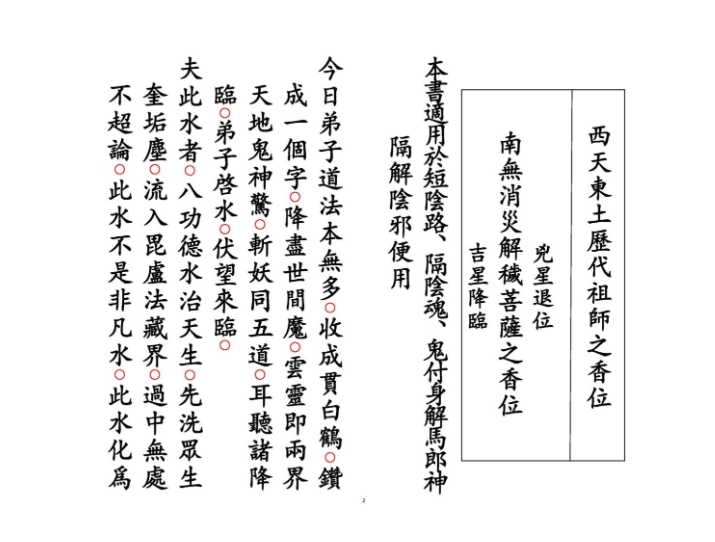 西天東土歷代祖師之香位
兇星退位
南無消災解穢菩薩之香位
吉星降臨
本書適用於短陰路、隔陰魂、鬼付身解馬郎神
隔解陰邪便用
今日弟子道法本無多○收成貫白鶴○鑽
成一個字○降盡世間魔○雲靈即兩界
天地鬼神驚○斬妖同五道○耳聽諸降
臨○弟子啓水○伏望來臨○
夫此水者○八功德水治天生○先洗眾生
奎垢塵○流入毘盧法藏界○過中無處
不超論○此水不是非凡水○此水化爲
2